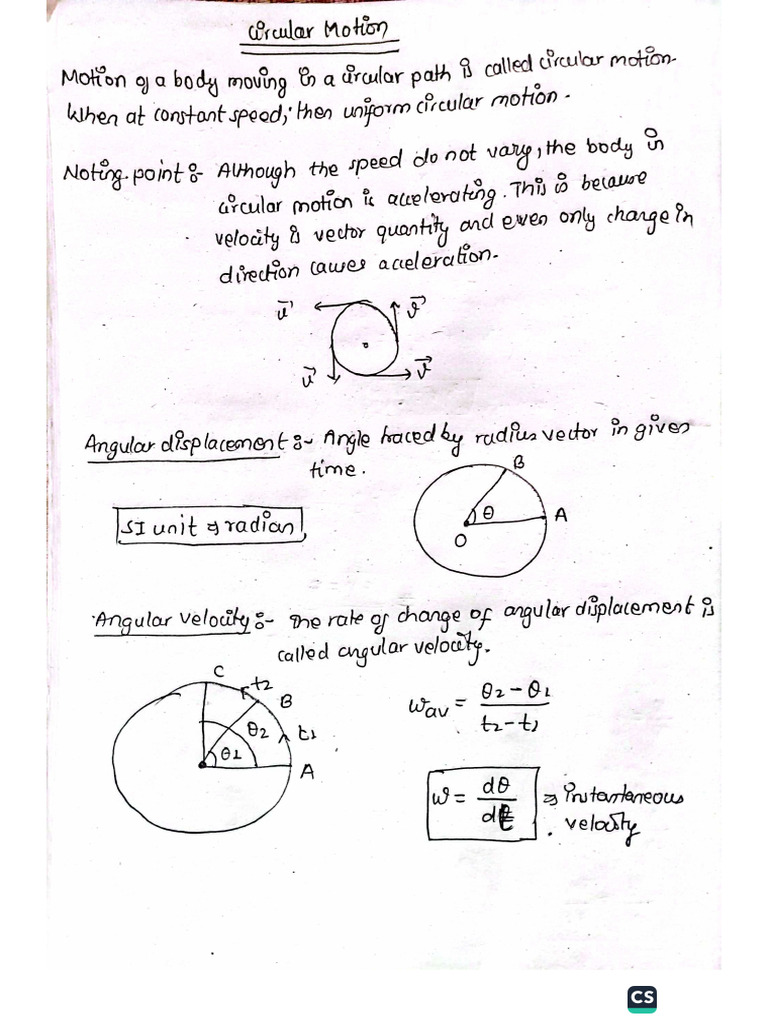 Circular Motion
Motion of a body moving in a circular path is called circular motion.
When at constant speed, then uniform circular motion.
Noting point :- Although the speed do not vary, the body in
circular motion is accelerating. This is because
velocity is vector quantity and even only change in
direction causes acceleration.
v⃗ v⃗
v⃗ v⃗
Angular displacement :- Angle traced by radius vector in given
time.
B
SI unit ⇒ radian
θ A
O
Angular velocity :- The rate of change of angular displacement is
called angular velocity.
C t2
B
θ2 t1
θ1
A
ωav = θ2 - θ1 / t2 - t1
ω = dθ / dt ⇒ instantaneous
velocity
CS